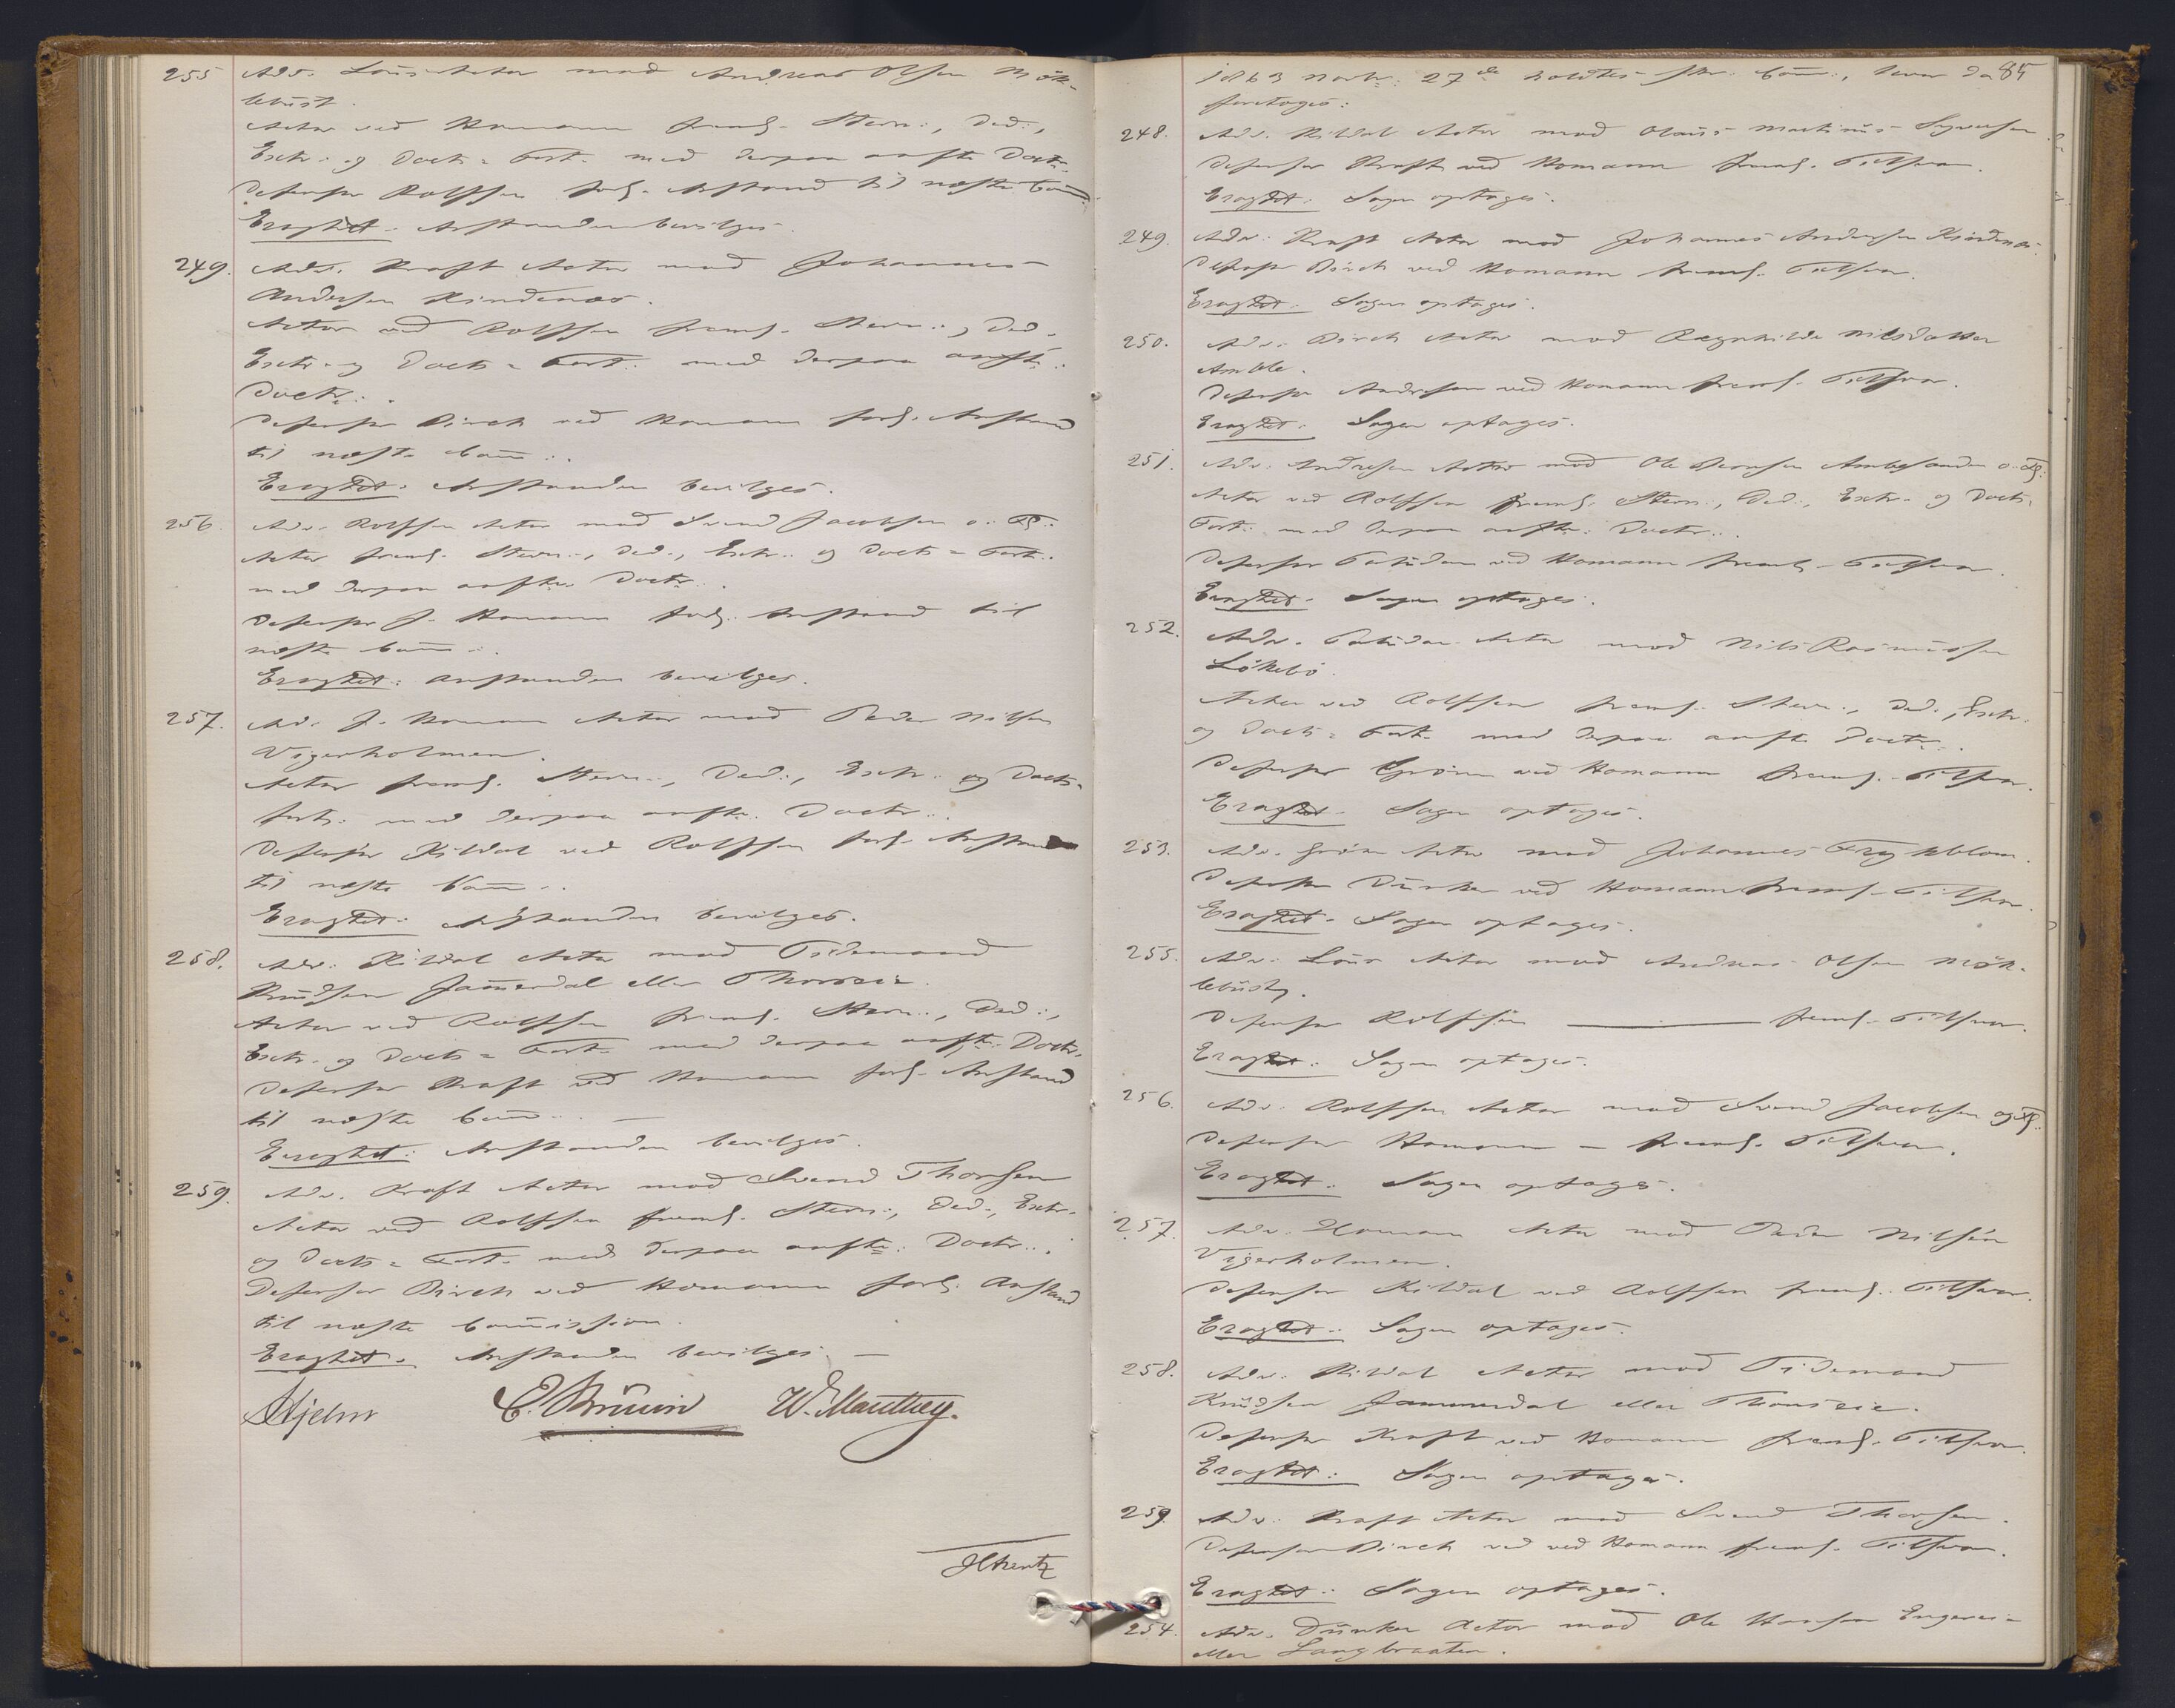 255 Adv. Lous Actor mod Andreas Olsen Mök-
lebust.
Actor ved Homann freml. Stevn:, Ded:,
Extr: og Doct: Fort: med derpaa anførte Doctr:
Defensor Rolffsen forl. Anstand til næste Comm:
Eragtet: Anstanden bevilges.
249. Adv. Kraft Actor mod Johannes
Andersen Kindenæs.
Actor ved Rolffsen freml. Stevn:, Ded:,
Extr: og Doct: Fort: med derpaa anførte
Doctr:.
Defensor Birch ved Homann forl. Anstand
til næste Comm:.
Eragtet: Anstanden bevilges.
256. Adv. Rolffsen Actor mod Svend Jacobsen o: Fl:
Actor freml. Stevn:, Ded:, Extr: og Doct: Fort:
med derpaa anførte Doctr:.
Defensor J. Homann forl. Anstand til
næste Comm:.
Eragtet: Anstanden bevilges.
257. Adv. J. Homann Actor mod Peder Nilsen
Vigerholmen.
Actor freml. Stevn:, Ded:, Extr: og Doct:
Fort: med derpaa anførte Doctr:.
Defensor Kildal ved Rolffsen forl. Anstand
til næste Comm:.
Eragtet: Anstanden bevilges.
258. Adv. Kildal Actor mod Tidemand
Knudsen Jammerdal eller
Actor ved Rolffsen freml. Stevn:, Ded:,
Extr: og Doct: Fort: med derpaa anførte Doctr:
Defensor Kraft ved Homann forl. Anstand
til næste Comm:. —
Eragtet: Anstanden bevilges.
259. Adv. Kraft Actor mod Svend Thorsen
Actor ved Rolffsen freml. Stevn:, Ded:, Extr:
og Doct: Fort: med derpaa anførte Doctr:.
Defensor Birch ved Homann forl. Anstand
til næste Commission.
Eragtet: Anstanden bevilges. —
Hjelm E. Bruun W. Manthey.
85
1863 Novbr: 27de holdtes Comm:, hvor da
foretoges:
248. Adv. Kildal Actor mod Olaus Martinus Syversen
Defensor Kraft ved Homann freml. Tilsvar.
Eragtet: Sagen optages.
249. Adv. Kraft Actor mod Johannes Andersen Kindenæs.
Defensor Birch ved Homann freml. Tilsvar.
Eragtet: Sagen optages.
250. Adv. Birch Actor mod Ragnhilda Nilsdatter
Amble.
Defensor Andresen ved Homann freml. Tilsvar.
Eragtet: Sagen optages.
251. Adv. Andresen Actor mod Ole o: Fl:
Actor ved Rolffsen freml. Stevn:, Ded:, Extr: og Doct:
Fort: med derpaa anførte Doctr:.
Defensor ved Homann freml. Tilsvar.
Eragtet: Sagen optages.
252. Adv. Actor mod Nils Rasmussen
Lökebö.
Actor ved Rolffsen freml. Stevn:, Ded:, Extr:
og Doct: Fort: med derpaa anførte Doctr:.
Defensor Grönn ved Homann freml. Tilsvar.
Eragtet: Sagen optages.
253. Adv. Grönn Actor mod Johannes Frykblom.
Defensor Dunker ved Homann freml. Tilsvar.
Eragtet: Sagen optages.
255. Adv. Lous Actor mod Andreas Olsen Mök-
lebust.
Defensor Rolffsen — freml. Tilsvar.
Eragtet: Sagen optages.
256. Adv. Rolffsen Actor mod Svend Jacobsen og Fl:
Defensor Homann — freml. Tilsvar.
Eragtet: Sagen optages.
257. Adv. Homann Actor mod Peder Nilsen
Vigerholmen.
Defensor Kildal ved Rolffsen freml. Tilsvar.
Eragtet: Sagen optages.
258. Adv. Kildal Actor mod Tidemand
Knudsen Jammerdal eller
Defensor Kraft ved Homann freml. Tilsvar.
Eragtet: Sagen optages.
259. Adv. Kraft Actor mod Svend Thorsen.
Defensor Birch ved ved Homann freml. Tilsvar.
Eragtet: Sagen optages.
254. Adv. Dunker Actor mod Ole Hansen
eller Langbraaten.